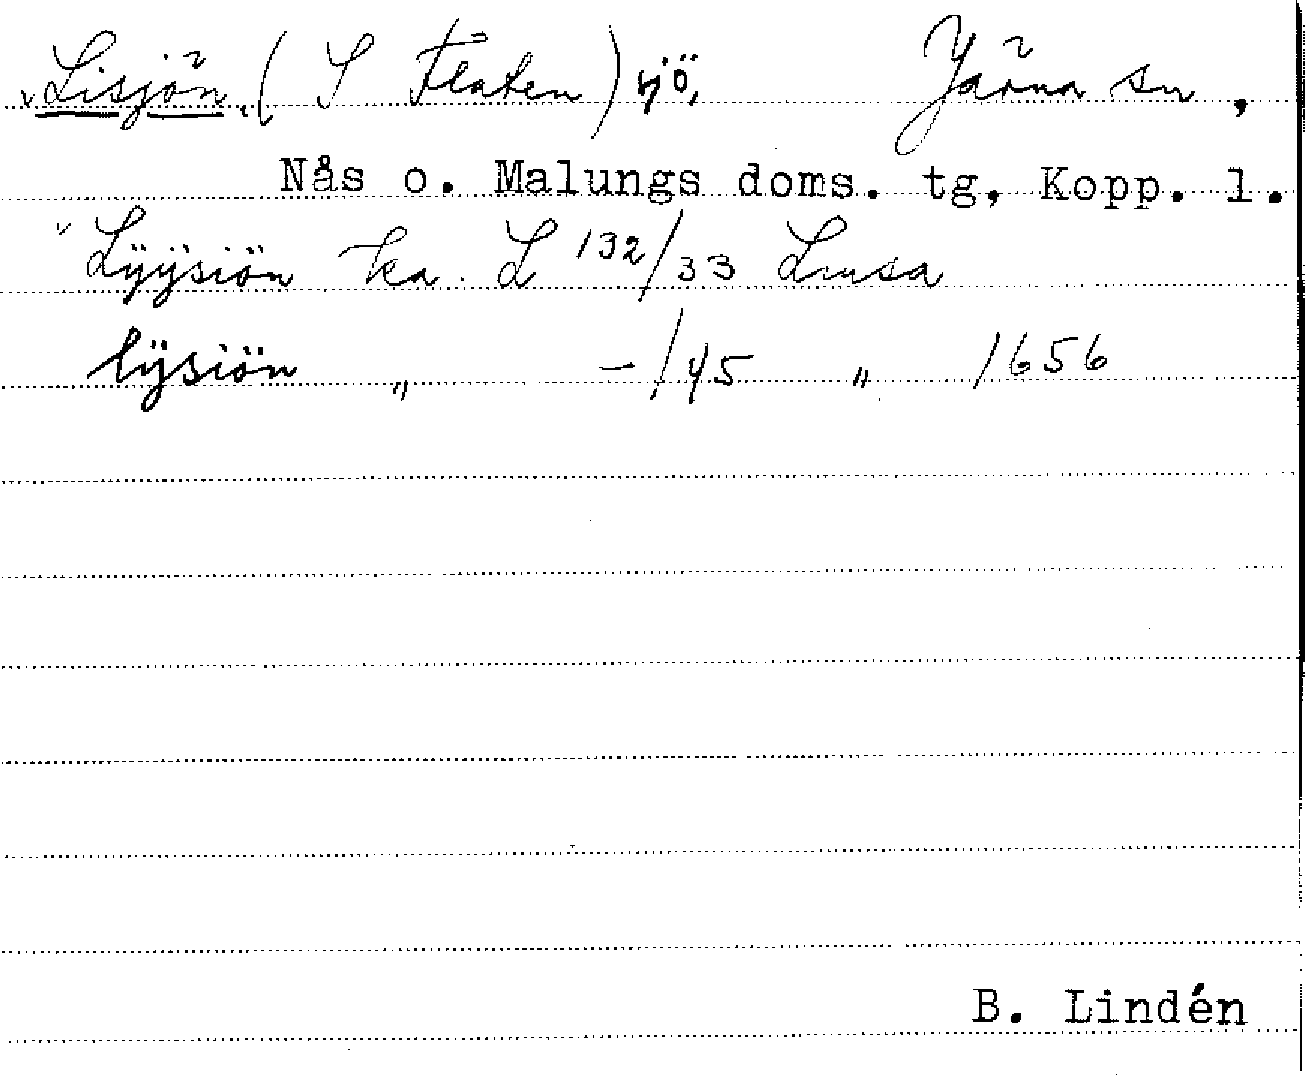 "Lisjön" (S Flaten) sjö, Järna sn,
Nås o. Malungs doms. tg, Kopp. l.
" Lÿÿsiön ka. L 132/33 Limsa
lÿsiön " -/45 " 1656
B. Lindén